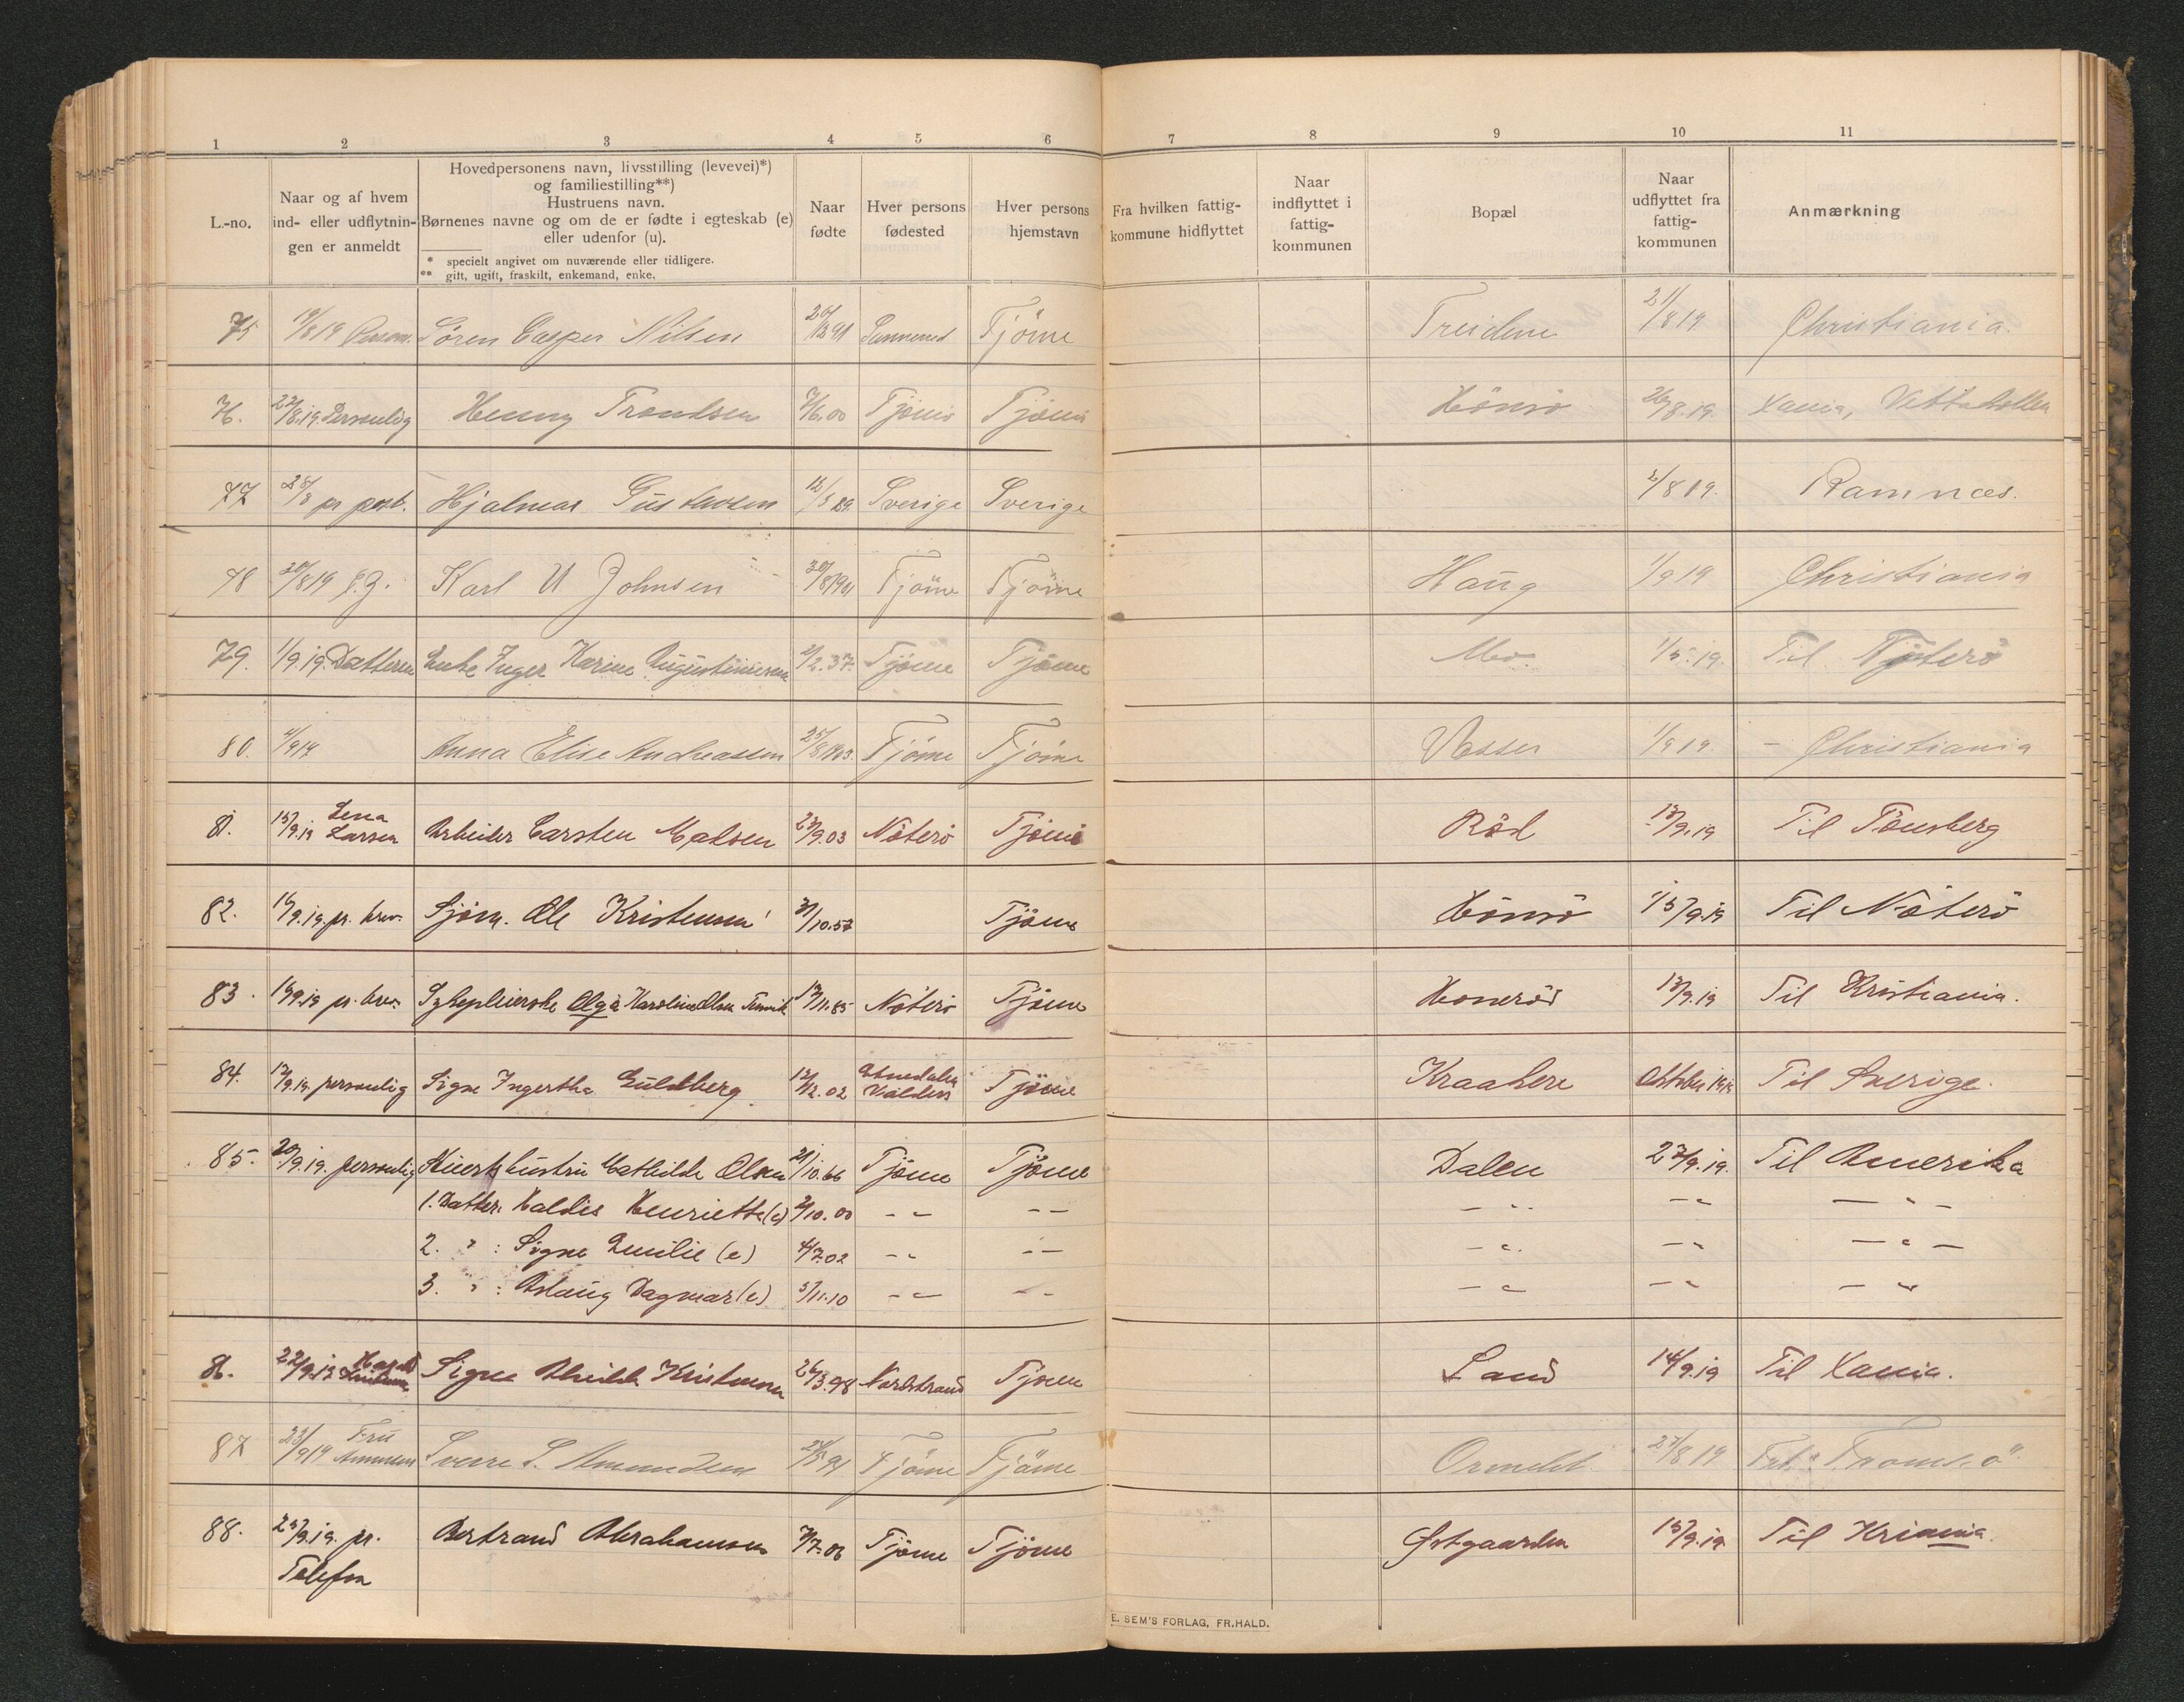 1 2 3 4 5 6 7 8 9 10 11
L.-no.
Naar og af hvem
ind- eller udflytnin-
gen er anmeldt
Hovedpersonens navn, livsstilling (levevei)*)
og familiestilling**)
Hustruens navn.
Børnenes navne og om de er fødte i egteskab (e)
eller udenfor (u).
* specielt angivet om nuværende eller tidligere.
** gift, ugift, fraskilt, enkemand, enke.
Naar
fødte
Hver persons
fødested
Hver persons
hjemstavn
Fra hvilken fattig-
kommune hidflyttet
Naar
indflyttet i
fattig-
kommunen
Bopæl
Naar
udflyttet fra
fattig-
kommunen
Anmærkning
75 19/8 19 Person. Søren Casper Nilsen Sannesund Tjöme Treidene 21/8 19 Christiania.
76. 22/8.19. Personlig Henny Trondsen 7/6.00 Tjöme Tjöme Hönsö 26/8.19. Xania, Vettakollen
77 28/8 pr post. Hjalmar Gustavsen Sverige Sverige 2/8 19. Ramnæs.
78 30/8 19 Karl U Johnsen 30/8 1901 Tjöme Tjöme Haug 1/9 19 Christiania
79. 1/9.19. Datteren Enke Inger Karine Augustinesen 2/2.37. Tjöme Tjöme Mo. 1/5.19. Til Nöterö
80. 1/9 19 Anna Elise Andreassen 25/8 1903. Tjöme Tjöme Vasser 1/9 19. – Christiania
81. 15/9.19 Lena
Larsen Arbeider Carsten Madsen 23/9.03 Nöterö Tjöme Röd 13/9.19 Til Tönsberg
82. 16/9.19. pr. brev. Sjöm. Ole Kristensen 31/10.57 Tjöme Hönsö 15/9.19 Til Nöterö
83. 16/9.19 pr. brev. Sykepleierske Olga Karoline Olsen 17/11.85 Nöterö Tjöme Honeröd 13/9.19 Til Kristiania.
84. 17/9.19. personlig Signe Ingertha Guldberg 12/12.02 Etnedalen
Valders Tjöme Kraakere Oktober 1919 Til Sverige.
85. 20/9.19. personlig hustru Mathilde Olsen 21/10.66 Tjöme Tjöme Dalen 27/9.19. Til Amerika
1. Datter: Haldis Henriette (e) 2/10.00 – " – – – " – " – " – " –
2. " : Signe Emilie (e) 4/7.02 – " – – – " – " – " –
3. " : Aslaug Dagmar (e) 5/11.10 – " – – – – " – " – "
86. 22/9.19 Signe Alvilde Kristensen 26/3.98 Nordstrand Tjöme Sand 14/9.19 Til Xania.
87 23/9 19 Fru
Amundsen Sverre S. Amundsen Tjöme Tjöme Ormelet. 27/8 19 "Tromsö"
88. 25/9.19. pr.
Telefon Bertrand Abrahamsen 7/7.06 Tjöme Tjöme Østgaarden 15/9.19 Til Kriania.
E. SEM'S FORLAG, FR.HALD.